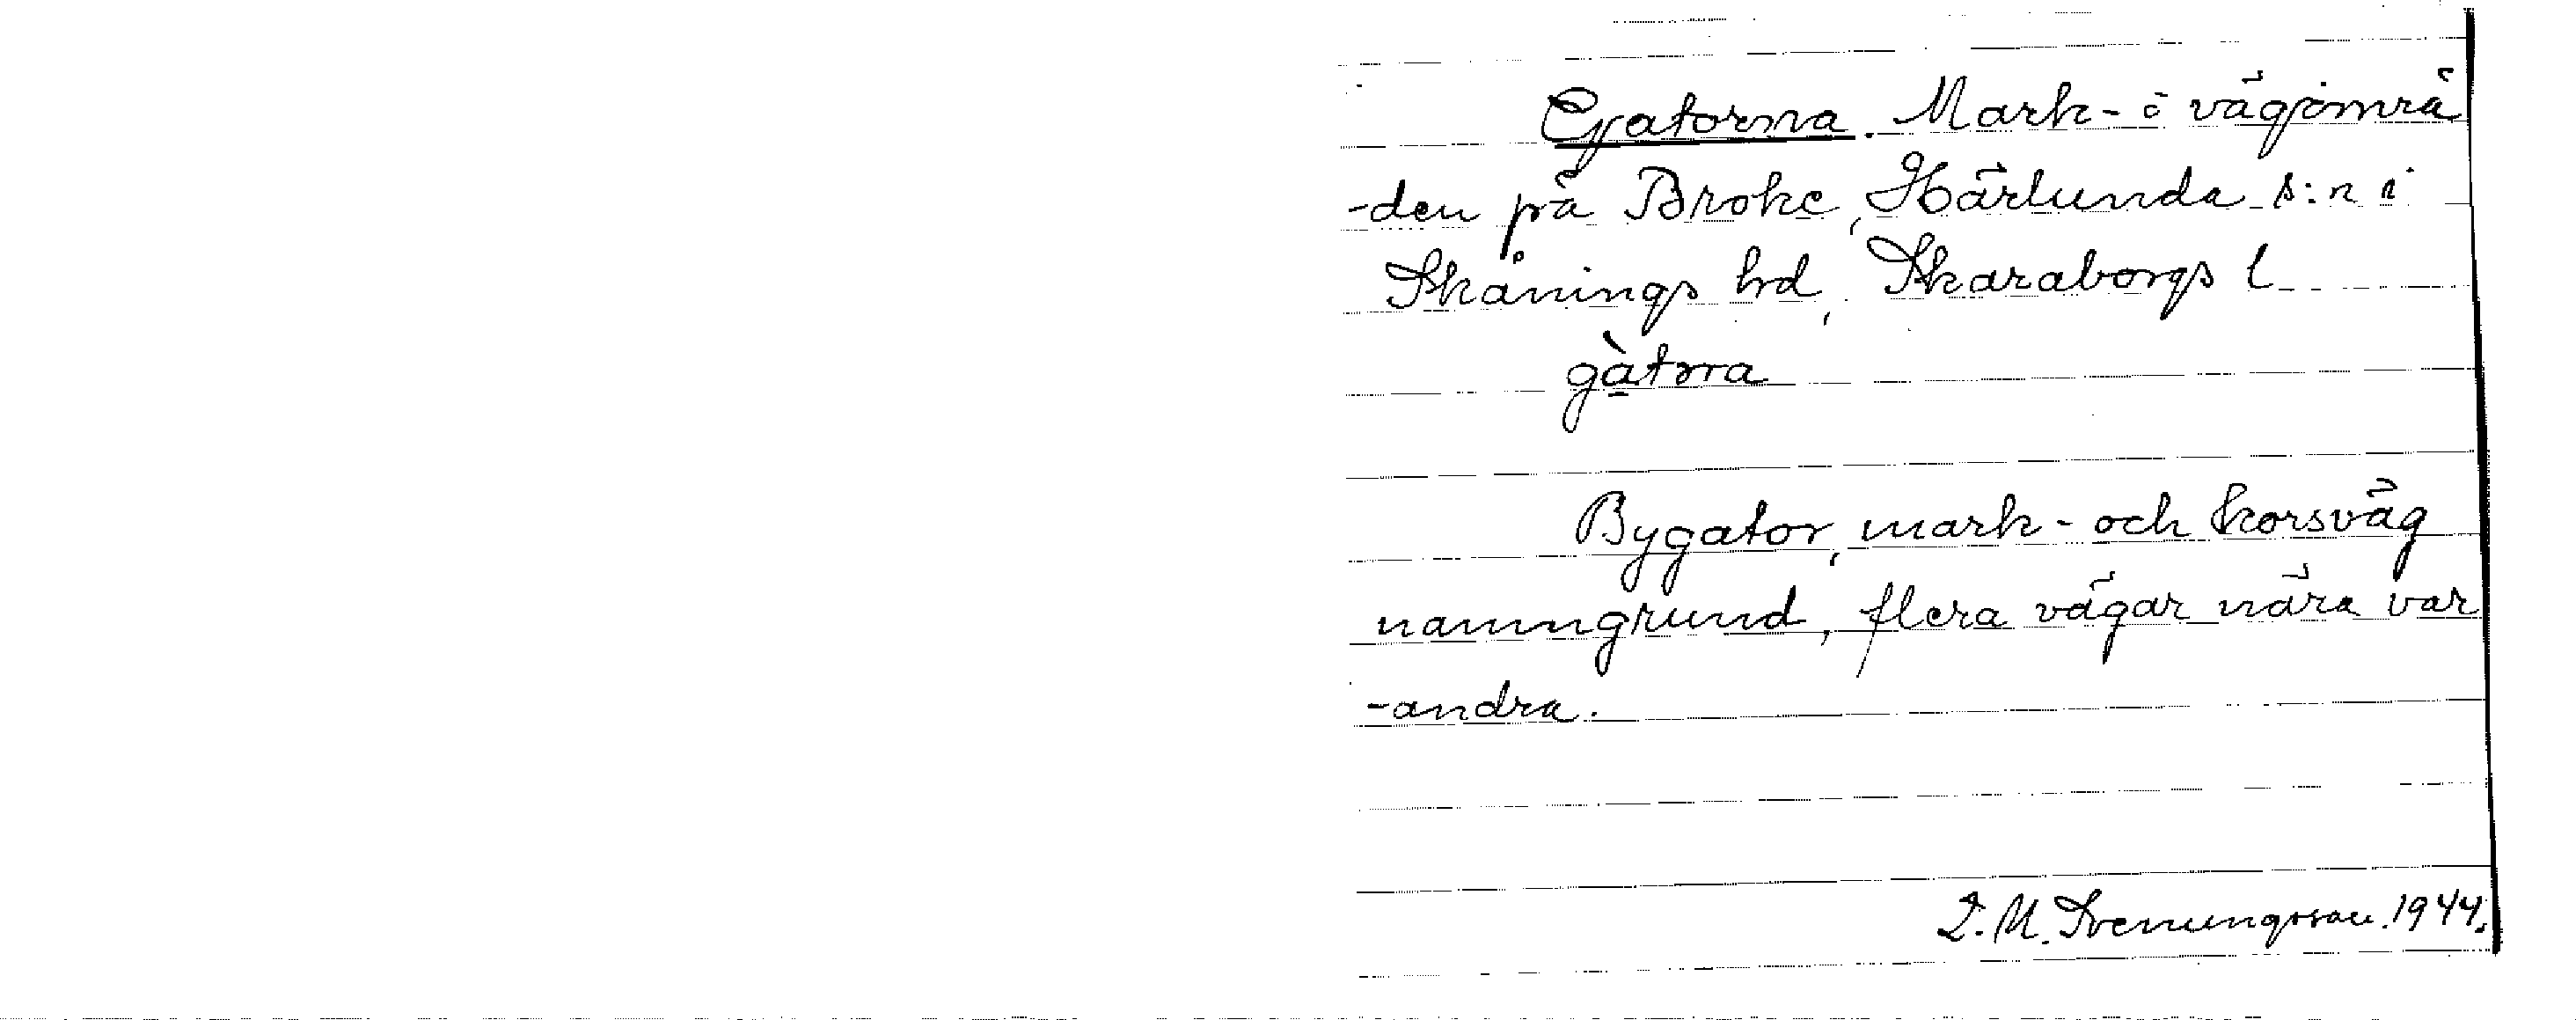 Gatorna. Mark- o vägområ
-den på Broke, Härlunda s:n i
Skånings hd, Skaraborgs l
gàtɔrna
Bygator, mark- och korsväg
namngrund, flera vägar nära var
-andra.
1944.